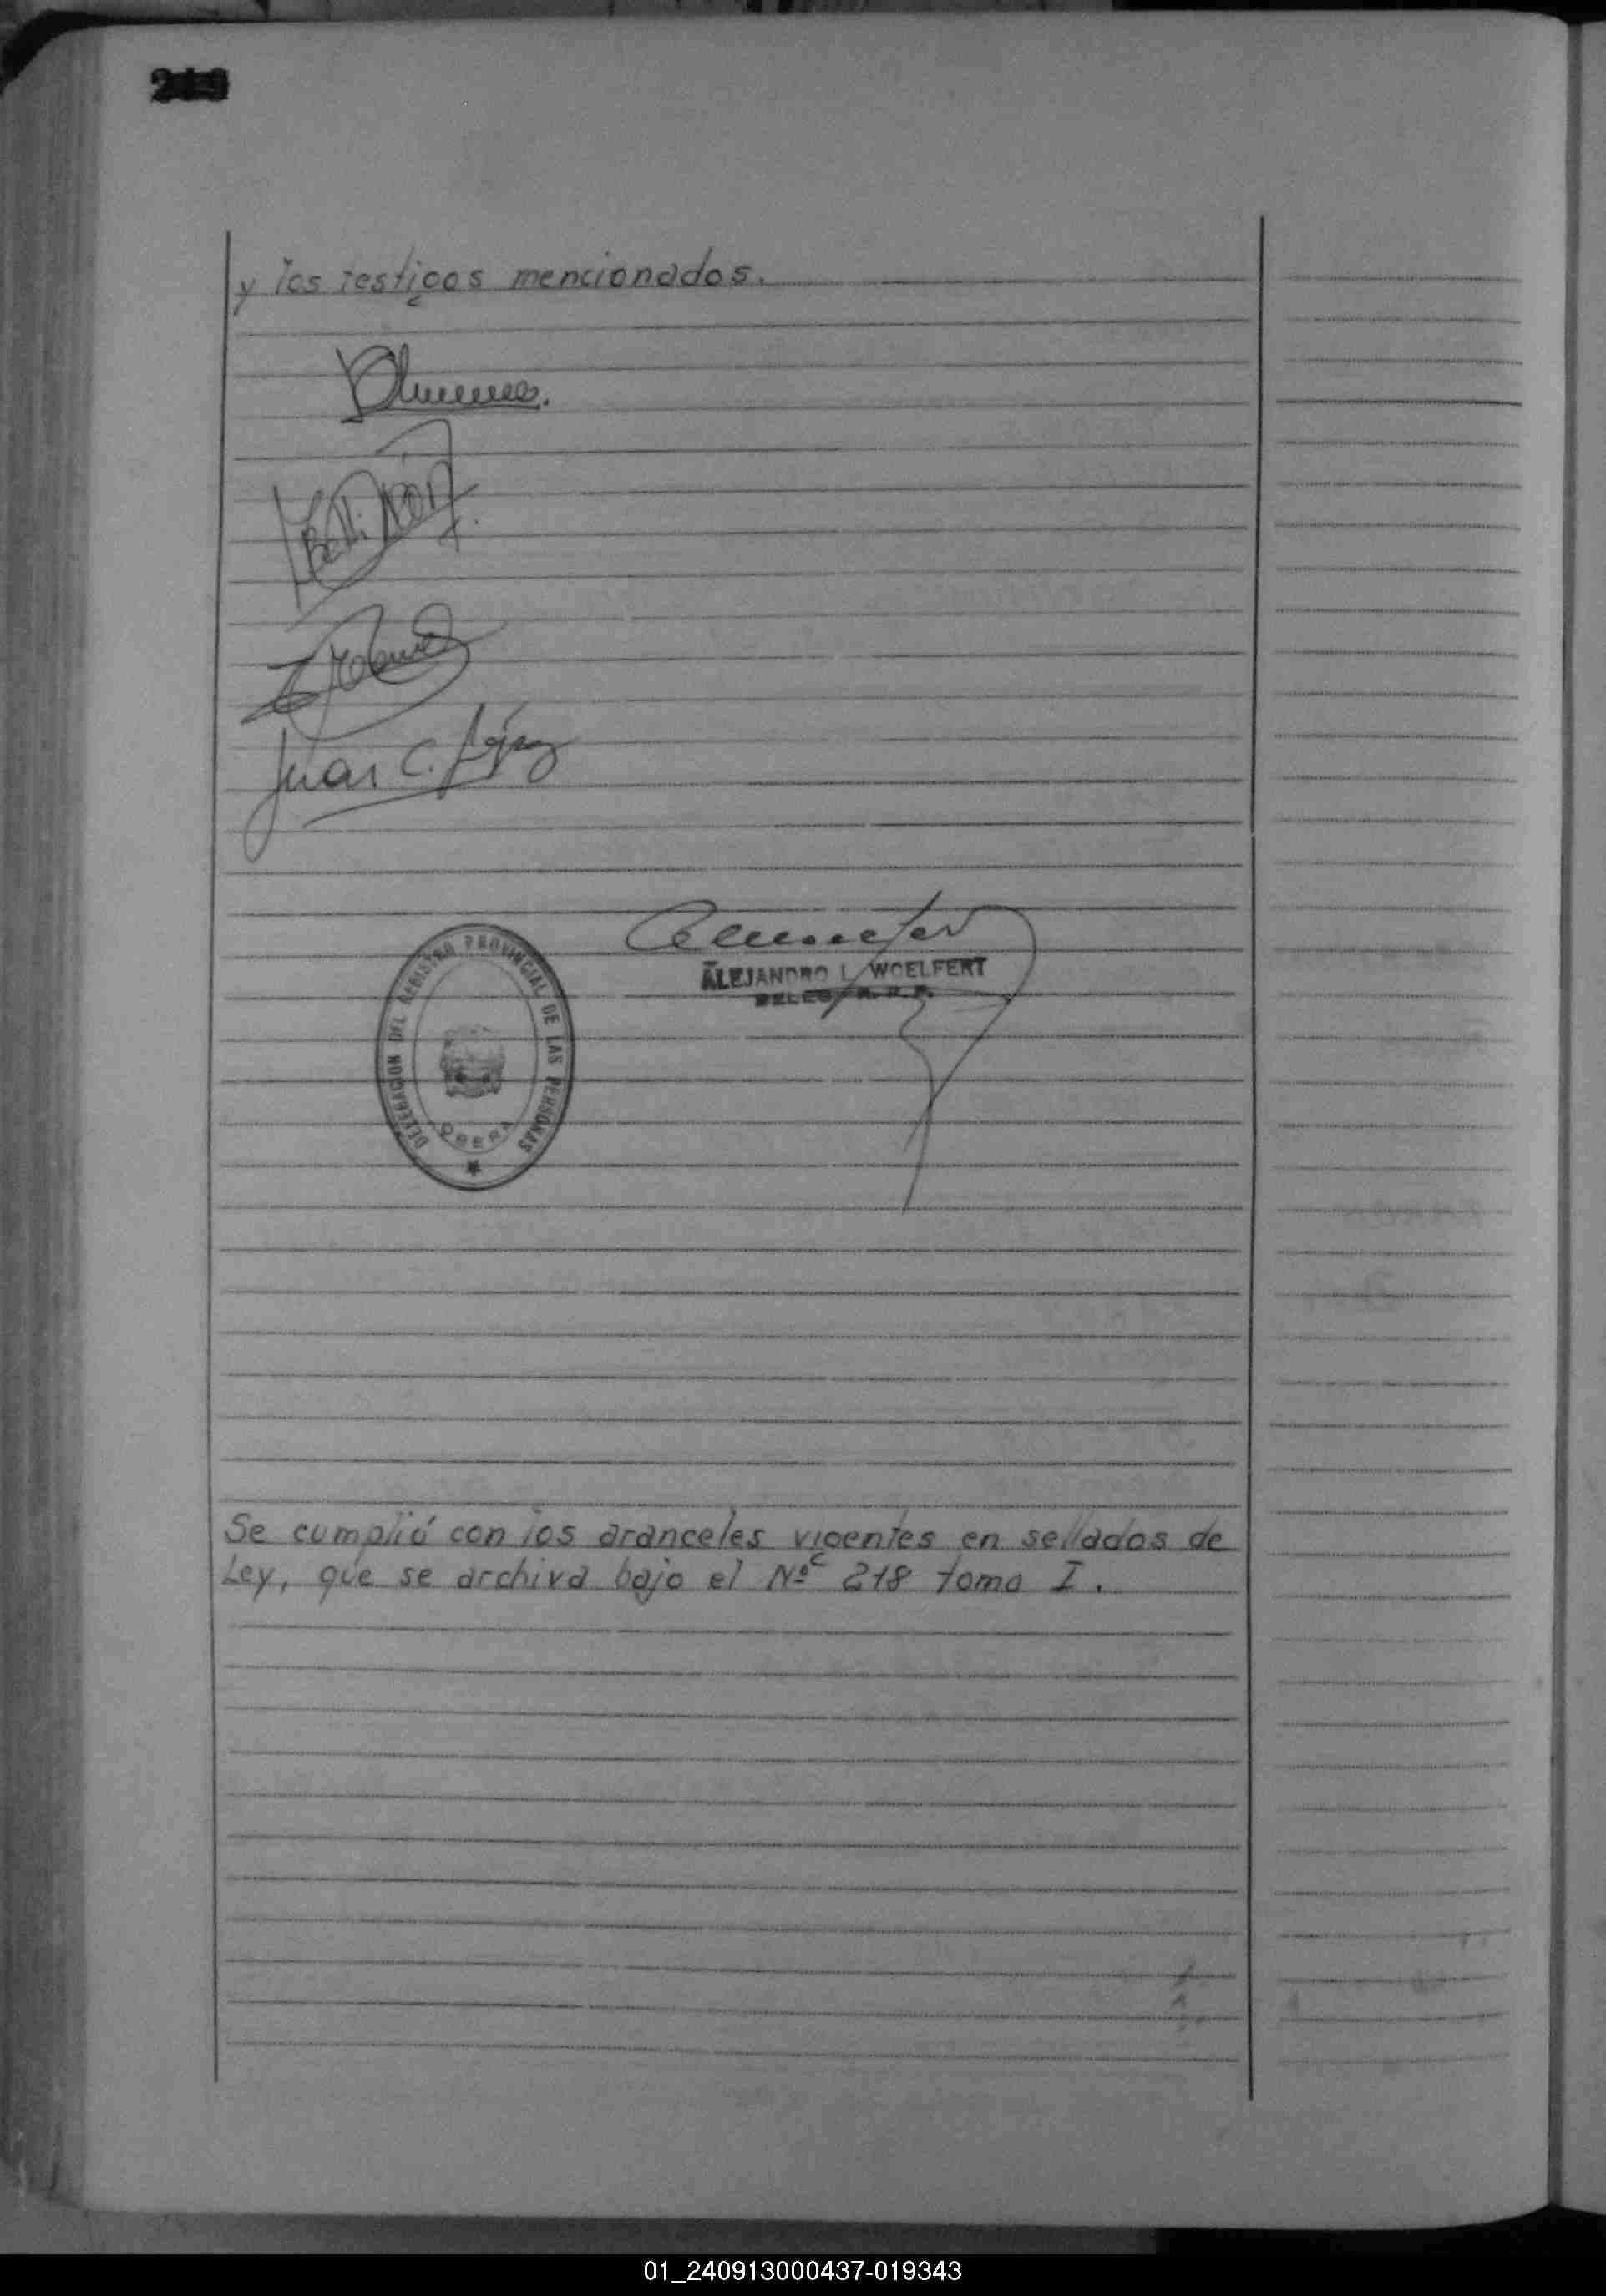 y los testigos mencionados.
Juan C. López
DELEGACION DEL REGISTRO PROVINCIAL DE LAS PERSONAS
OBERA
ALEJANDRO L. WOELFERT
Se cumplió con los aranceles vigentes en sellados de
Ley, que se archiva bajo el Nº 218 tomo I.
01_240913000437-019343